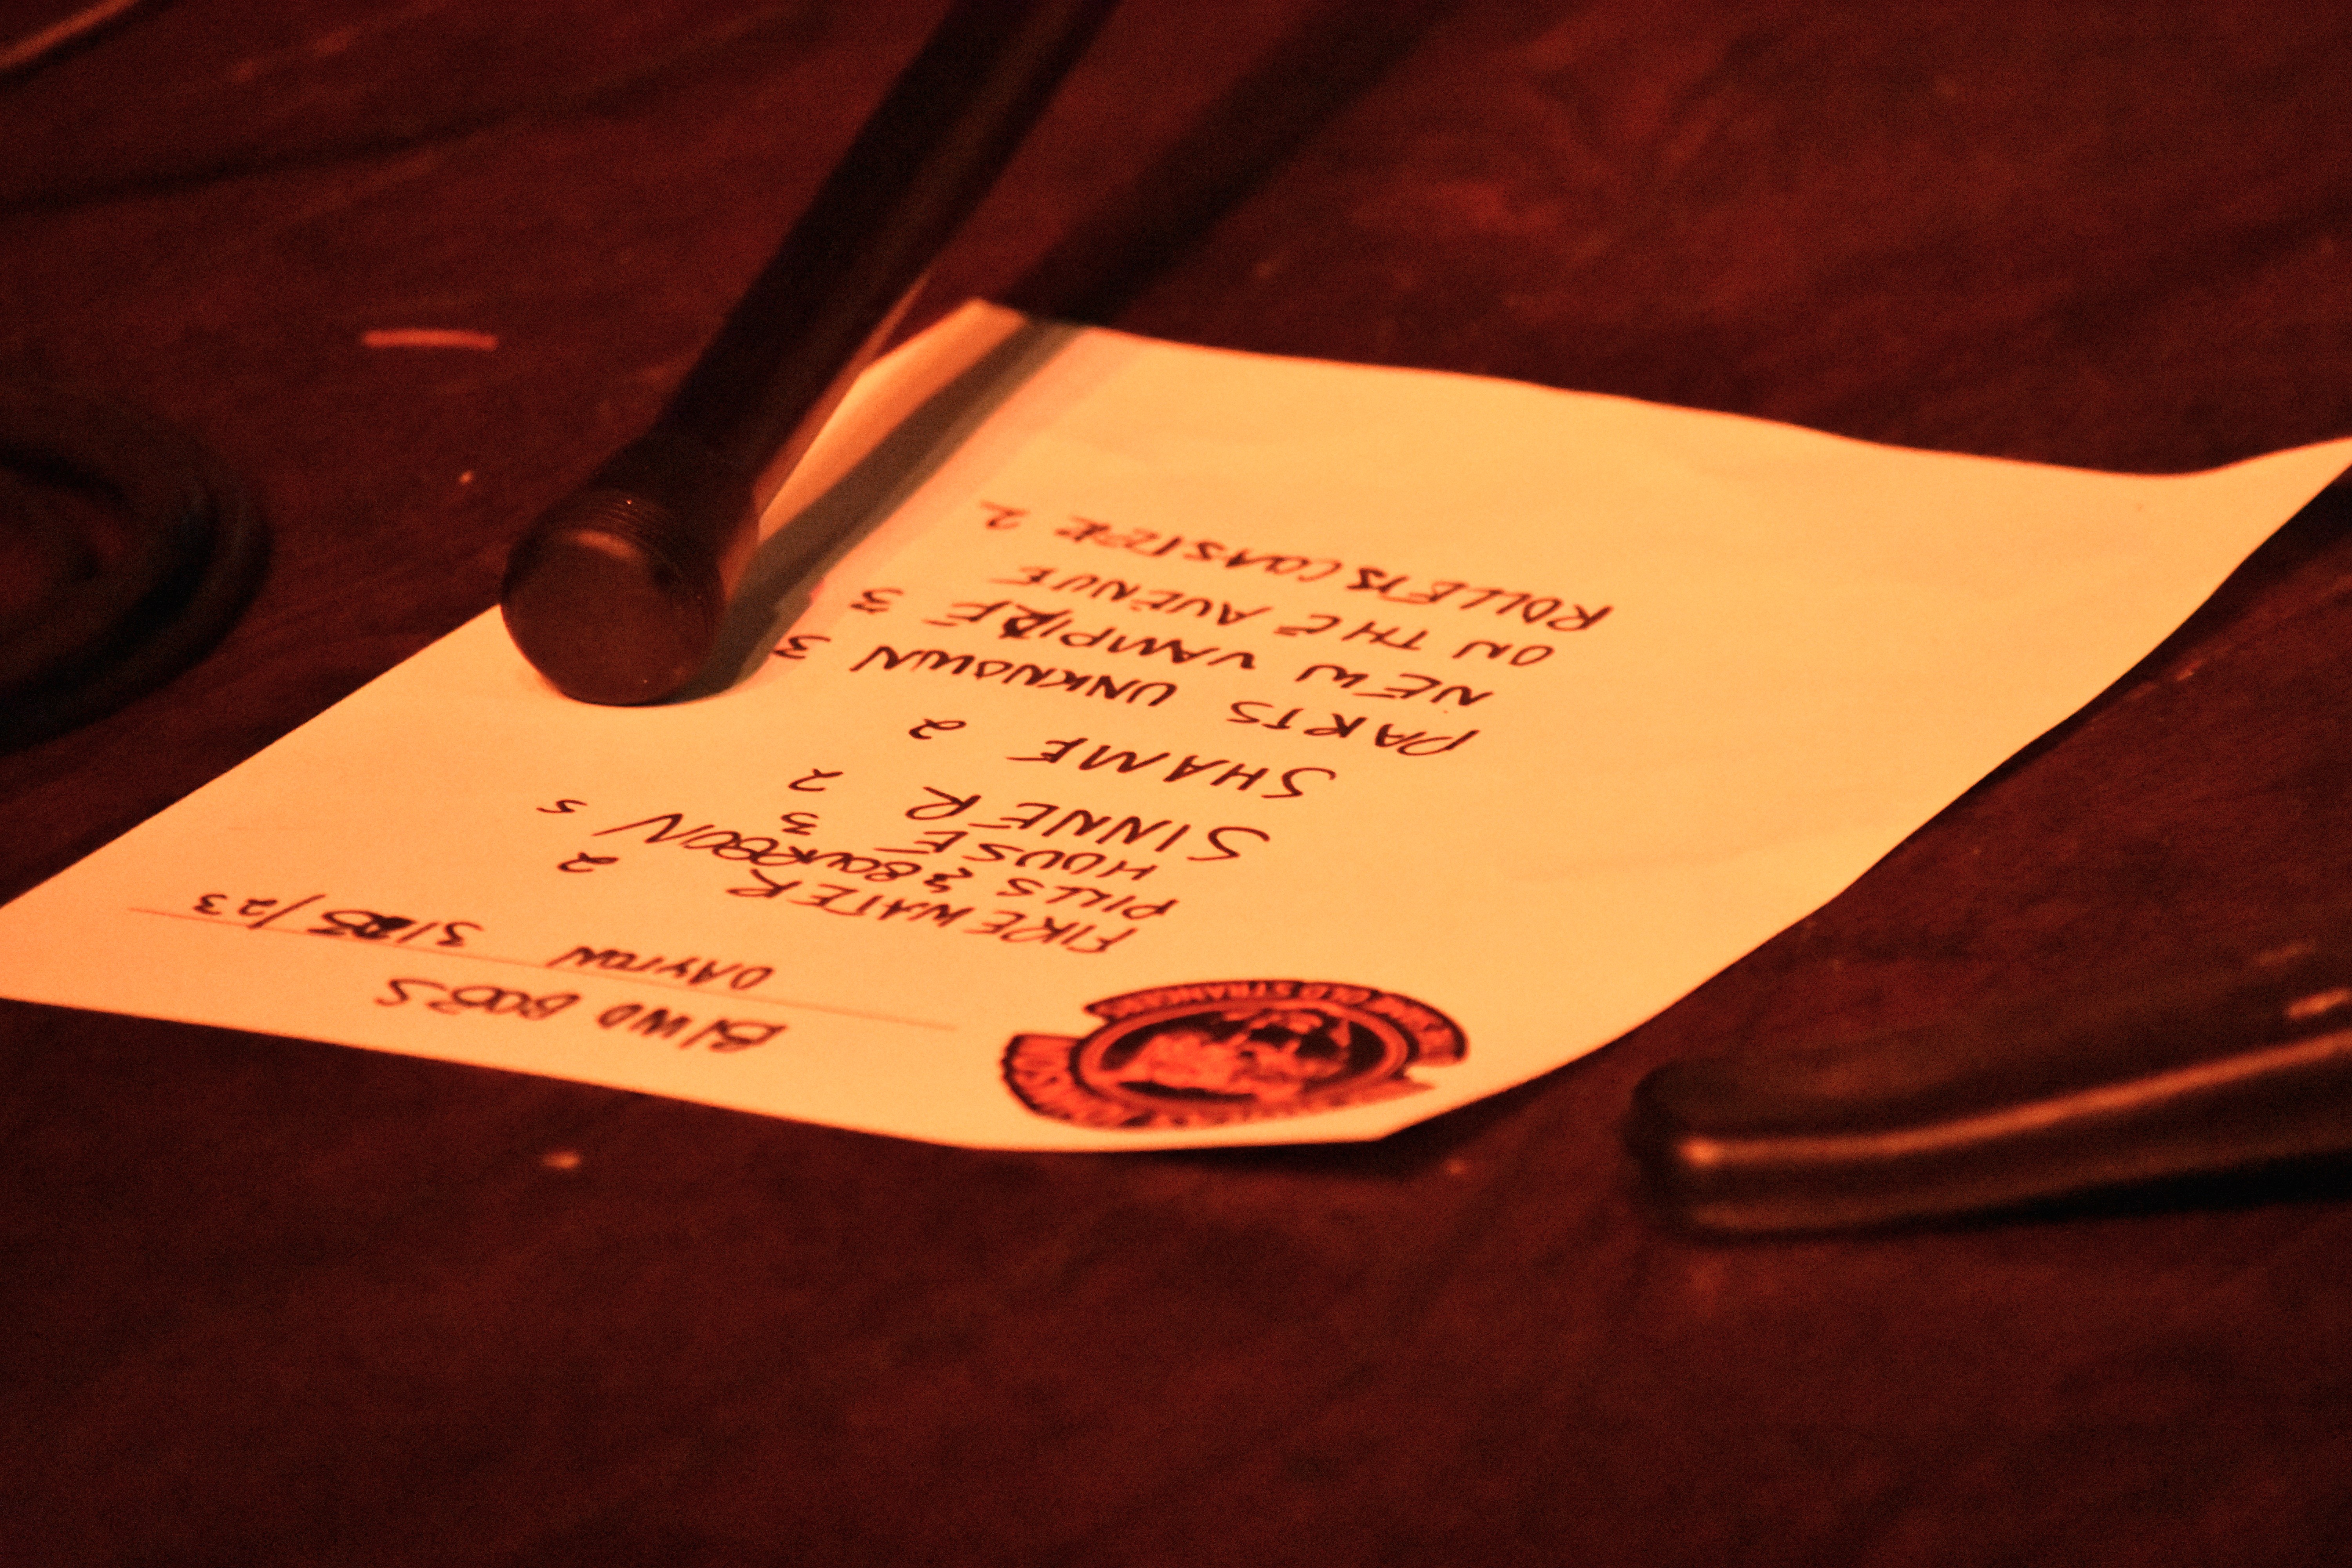 BLIND BOB'S
DAYTON 3/25/23
FIREWATER 2
PILLS & BOURBON 5
HOUSE 3
SINNER 2
SHAME 2
PARTS UNKNOWN 3
NEW VAMPIRE 3
ON THE AVENUE
ROLLERCOASTER 2
THE OLD STRANGE